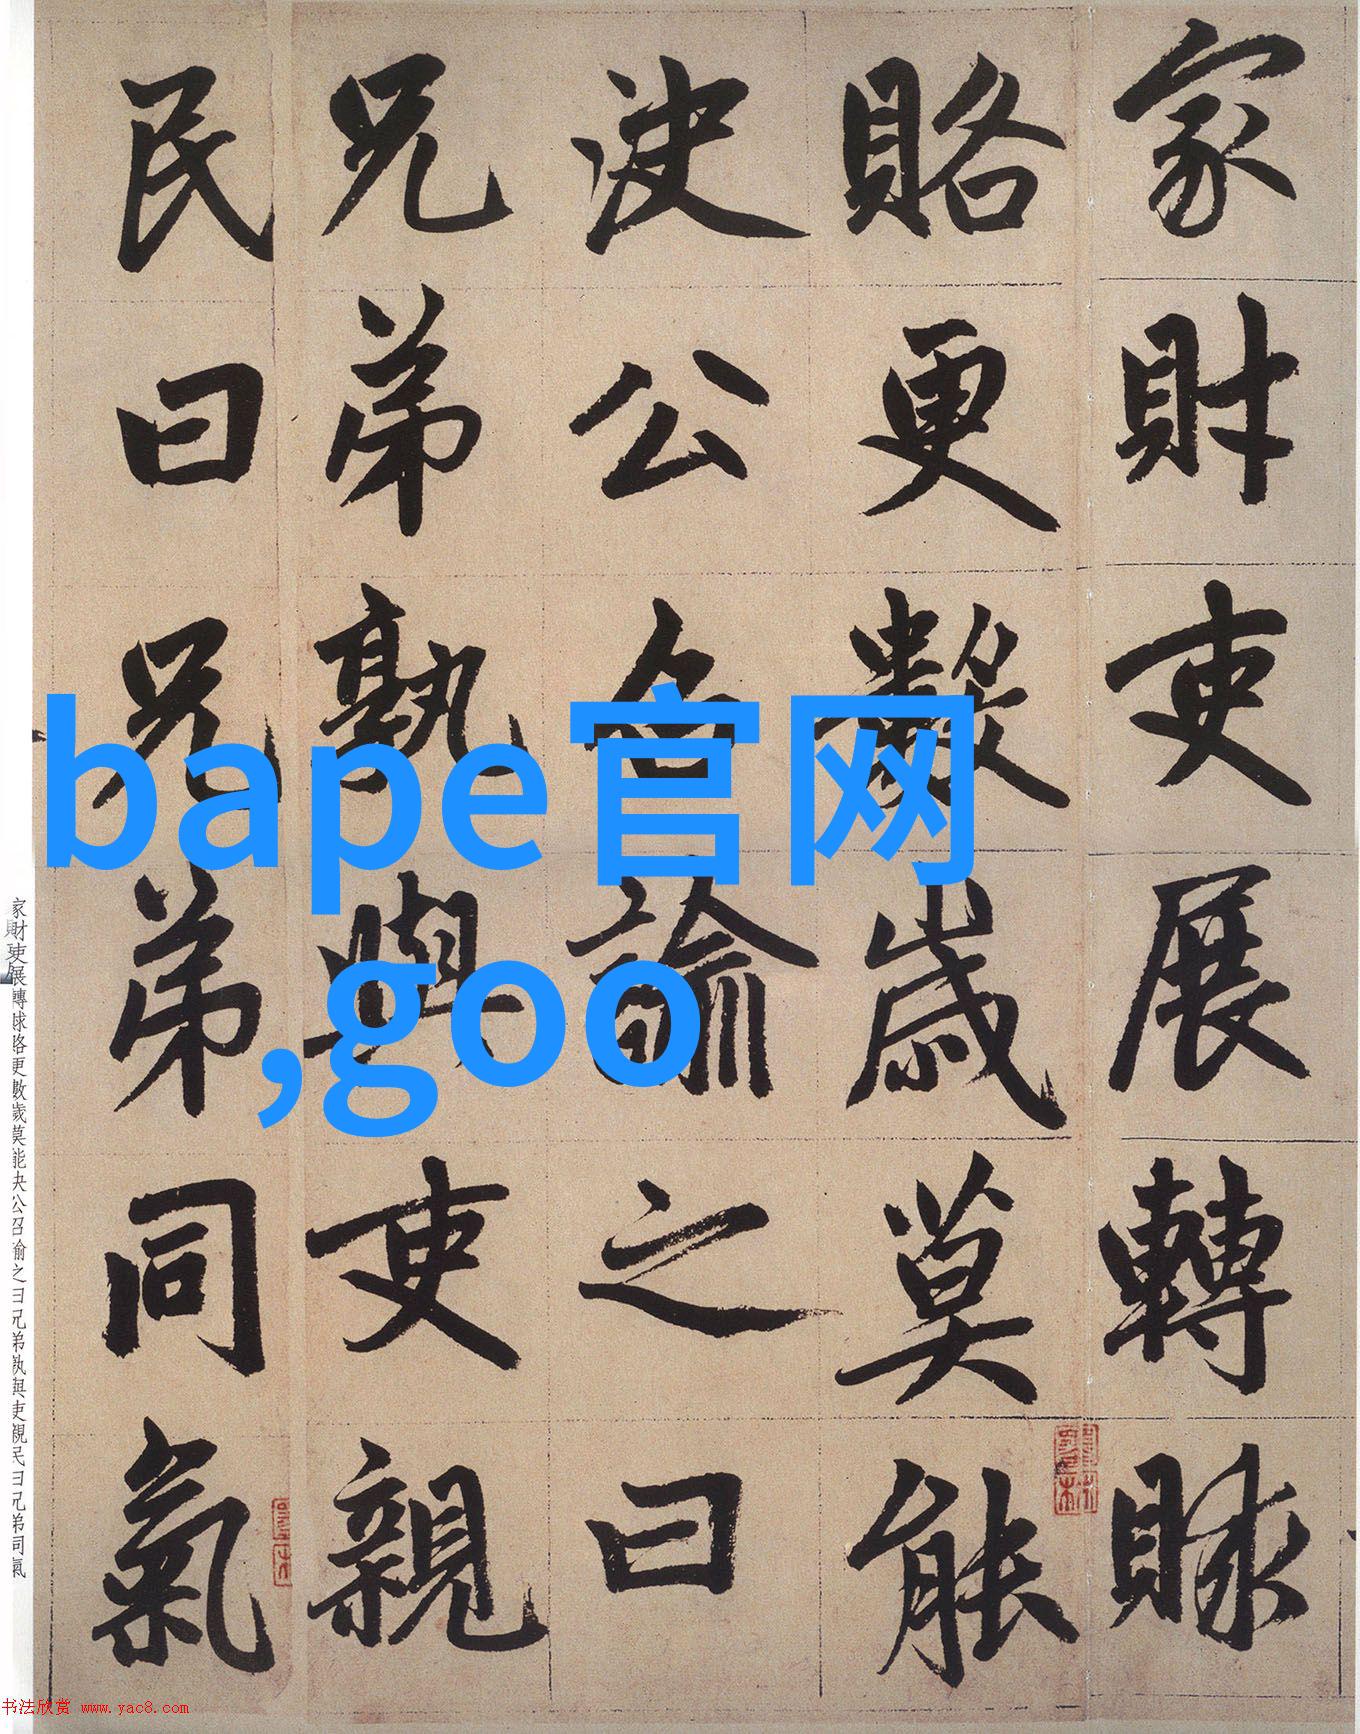 家財吏展轉賕
賂更數歲莫能
決公召諭之曰
兄弟孰與吏親
民曰兄弟同氣
bape官网
,goo
家財吏展轉賕賂更數歲莫能決公召諭之曰兄弟孰與吏親民曰兄弟同氣
书法欣赏 www.yac8.com